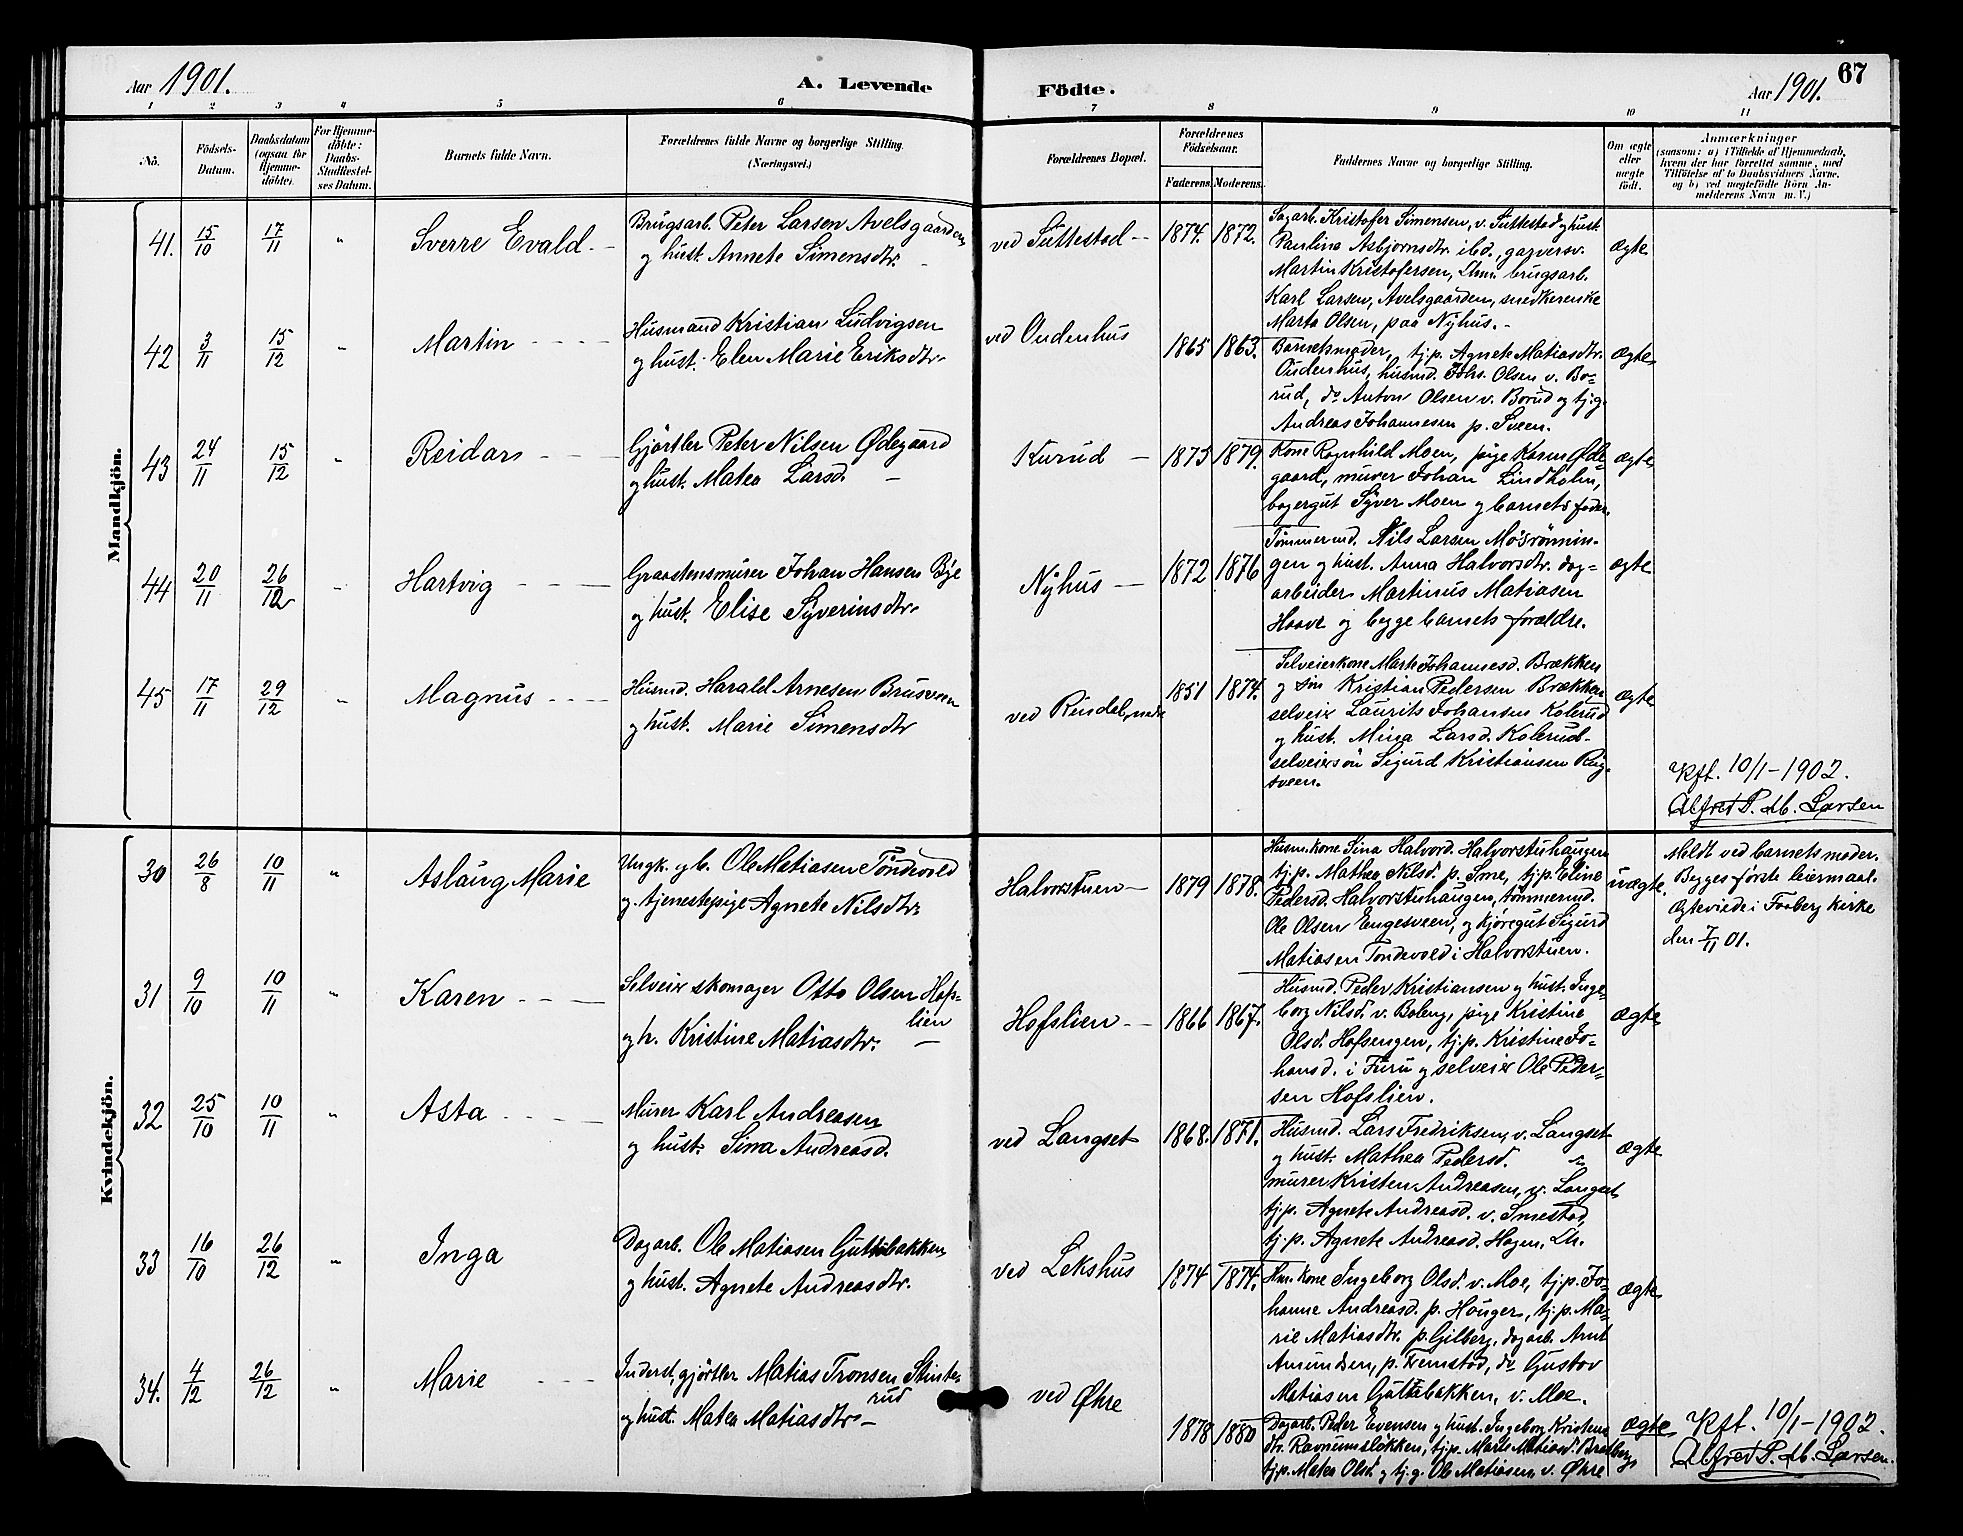 Aar 1901.
A. Levende
Födte.
Aar 1901.
67
1 2 3 4 5 6 7 8 9 10 11
No.
Födsels-
Datum.
Daabsdatum
(ogsaa for
Hjemme-
döbte).
For Hjemme-
döbte:
Daabs-
Stadfæstel-
ses Datum.
Barnets fulde Navn.
Forældrenes fulde Navne og borgerlige Stilling.
(Næringsvei.)
Forældrenes Bopæl.
Forældrenes
Födselsaar.
Faderens. Moderens.
Faddernes Navne og borgerlige Stilling.
Om ægte
eller
uægte
født.
Anmærkninger
(saasom: a) i Tilfælde af Hjemmedaab,
hvem der har forrettet samme, med
Tilföielse af to Daabsvidners Navne,
og b) ved uægtefödte Börn An-
melderens Navn m. V.)
Mandkjön.
41. 15/10 17/11 " Sverre Evald.
Brugsarb. Peter Larsen Avelsgaarden
og hust. Annete Simensdtr.
ved Suttestad 1874. 1872.
Sagarb. Kristofer Simensen, v. Suttestad og hust.
Paulina Asbjørnsdtr. ibd., garversv.
Martin Kristofersen, Lhmr. brugsarb.
Karl Larsen, Avelsgaarden, snedkerenke
Marta Olsen, paa Nyhus.
ægte
42 3/11 15/12 " Martin
Husmand Kristian Ludvigsen
og hust. Elen Marie Eriksdtr.
ved Oudenhus 1865 1863.
Barnetsmoder, tj.p. Agnete Matiasdtr.
Oudenhus, husmd. Johs. Olsen v. Bo-
rud, do Anton Olsen v. Borud og tj.g.
Andreas Johannesen p. Sveen.
ægte
43 24/11 15/12 " Reidar
Gjørtler Peter Nilsen Ødegaard
og hust. Matea Larsd.
Kurud 1875 1879.
Kone Ragnhild Moen, pige Karen Øde-
gaard, murer Johan Lindholm,
bagergut Syver Moen og barnets fader.
ægte
44 20/11 26/12 " Hartvig
Graastensmurer Johan Hansen Bye
og hust. Elise Syverinsdtr.
Nyhus 1872 1876
Tømmermd. Nils Larsen Mosrønnin-
gen og hust. Anna Halvorsdtr. dag-
arbeider Martinus Matiasen
Haave og begge barnets forældre.
ægte
45 17/11 29/12 " Magnus
Husmd. Harald Arnesen Brusveen
og hust. Marie Simensdtr
ved Rindal, nedre 1851 1874.
Selveierkone Marte Johannesd. Brækken
og søn Kristian Pedersen Brækken
selveier Laurits Johansen Kolerud
og hust. Mina Larsd. Kolerud
selveiersøn Sigurd Kristiansen Ring-
sveen.
ægte
Kft. 10/1-1902.
Alfred P. Lb. Larsen
Kvindekjön.
30 26/8 10/11 " Aslaug Marie
Ungk. og b. Ole Matiasen Tøndevold
og tjenestepige Agnete Nilsdtr.
Halvorstuen 1879 1878.
Husm.kone Sina Halvord. Halvorstuhaugen
tj.p. Mathea Nilsd. p. Sme, tj.p. Eline
Pedersd. Halvorstuhaugen, tømmermd.
Ole Olsen Engesveen, og kjøregut Sigurd
Matiasen Tøndevold i Halvorstuen.
uægte
Meldt ved barnets moder.
Begges første leiermaal.
Ægteviede i Faaberg kirke
den 7/11 01.
31 9/10 10/11 " Karen
Selveier skomager Otto Olsen Hofs-
lien
og h. Kristine Matiasdtr.
Hofslien 1866 1867.
Husmd. Peder Kristiansen og hust. Inge-
borg Nilsd. v. Boleng, pige Kristine
Olsd. Hofsengen, tj.p. Kristine Jo-
hansd. i Furu og selveier Ole Peder-
sen Hofslien.
ægte
32 25/10 10/11 " Asta
Murer Karl Andreasen
og hust. Sina Andreasd.
ved Langset 1868. 1871.
Husmd. Lars Fredriksen, v. Langset
og hust. Mathea Pedersd.
murer Kristen Andreasen, v. Langset
tj.p. Agnete Andreasd. v. Smestad,
tj.p. Agnete Andreasd. Hagen, Lh.
ægte
33 16/10 26/12 " Inga
Dagarb. Ole Matiasen Guttubakken
og hust. Agnete Andreasdtr.
ved Lekshus 1874 1874.
Hm. kone Ingeborg Olsd. v. Moe, tj.p. Jo-
hanne Andreasd. p. Houger, tj.p. Ma-
rie Matiasdtr. p. Gilberg, dagarb. Arnt
Amundsen, p. Fremstad, do Gustav
Matiasen Guttubakken, v. Moe.
ægte
34. 4/12 26/12 " Marie
Inderst, gjørtler Matias Tronsen Stinte-
rud
og hust. Matea Matiasdtr.
ved Øhre 1878 1880
Dagarb. Peder Evensen og hust. Ingeborg Kristens
dtr. Ravnumsløkken, tj.p. Marte Matiasd. Bratberg
tj.p. Matea Olsd. og tj.g. Ole Matiasen v. Øhre
ægte
Kft. 10/1-1902.
Alfred P. Lb. Larsen.